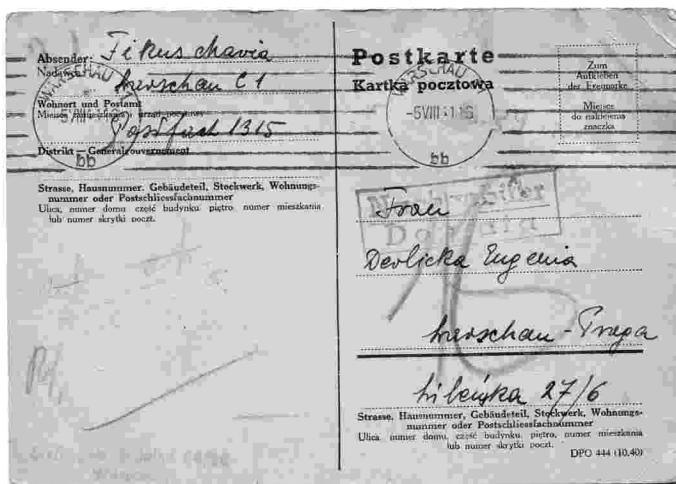 Absender: Fikus chavia
Nadawca: Warschau C1
Wohnort und Postamt
Miejsce zamieszkania i urząd pocztowy
Postfach 1315
Distrikt — Generalgouvernement
Strasse, Hausnummer, Gebäudeteil, Stockwerk, Wohnungs-
nummer oder Postschliessfachnummer
Ulica, numer domu, część budynku, piętro, numer mieszkania
lub numer skrytki poczt.
WARSCHAU
-5.VIII.41
bb
Postkarte
Kartka pocztowa
WARSCHAU
-5.VIII.41
bb
Zum
Aufkleben
der Freimarke
Miejsce
do naklejenia
znaczka
Dopłata
Frau
Devlicka Eugenia
Warschau-Praga
27/6
Strasse, Hausnummer, Gebäudeteil, Stockwerk, Wohnungs-
nummer oder Postschliessfachnummer
Ulica, numer domu, część budynku, piętro, numer mieszkania
lub numer skrytki poczt.
DPO 444 (10.40)